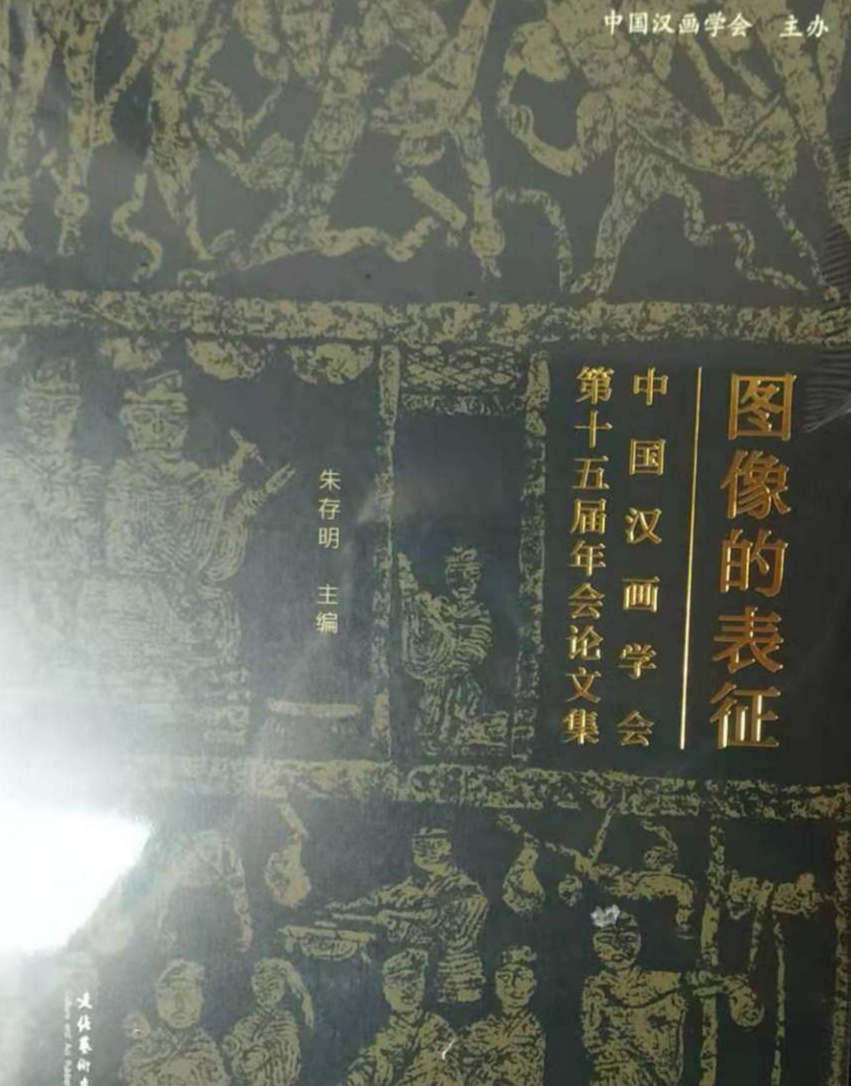 中国汉画学会 主办
图像的表征
中国汉画学会
第十五届年会论文集
朱存明 主编
文化艺术